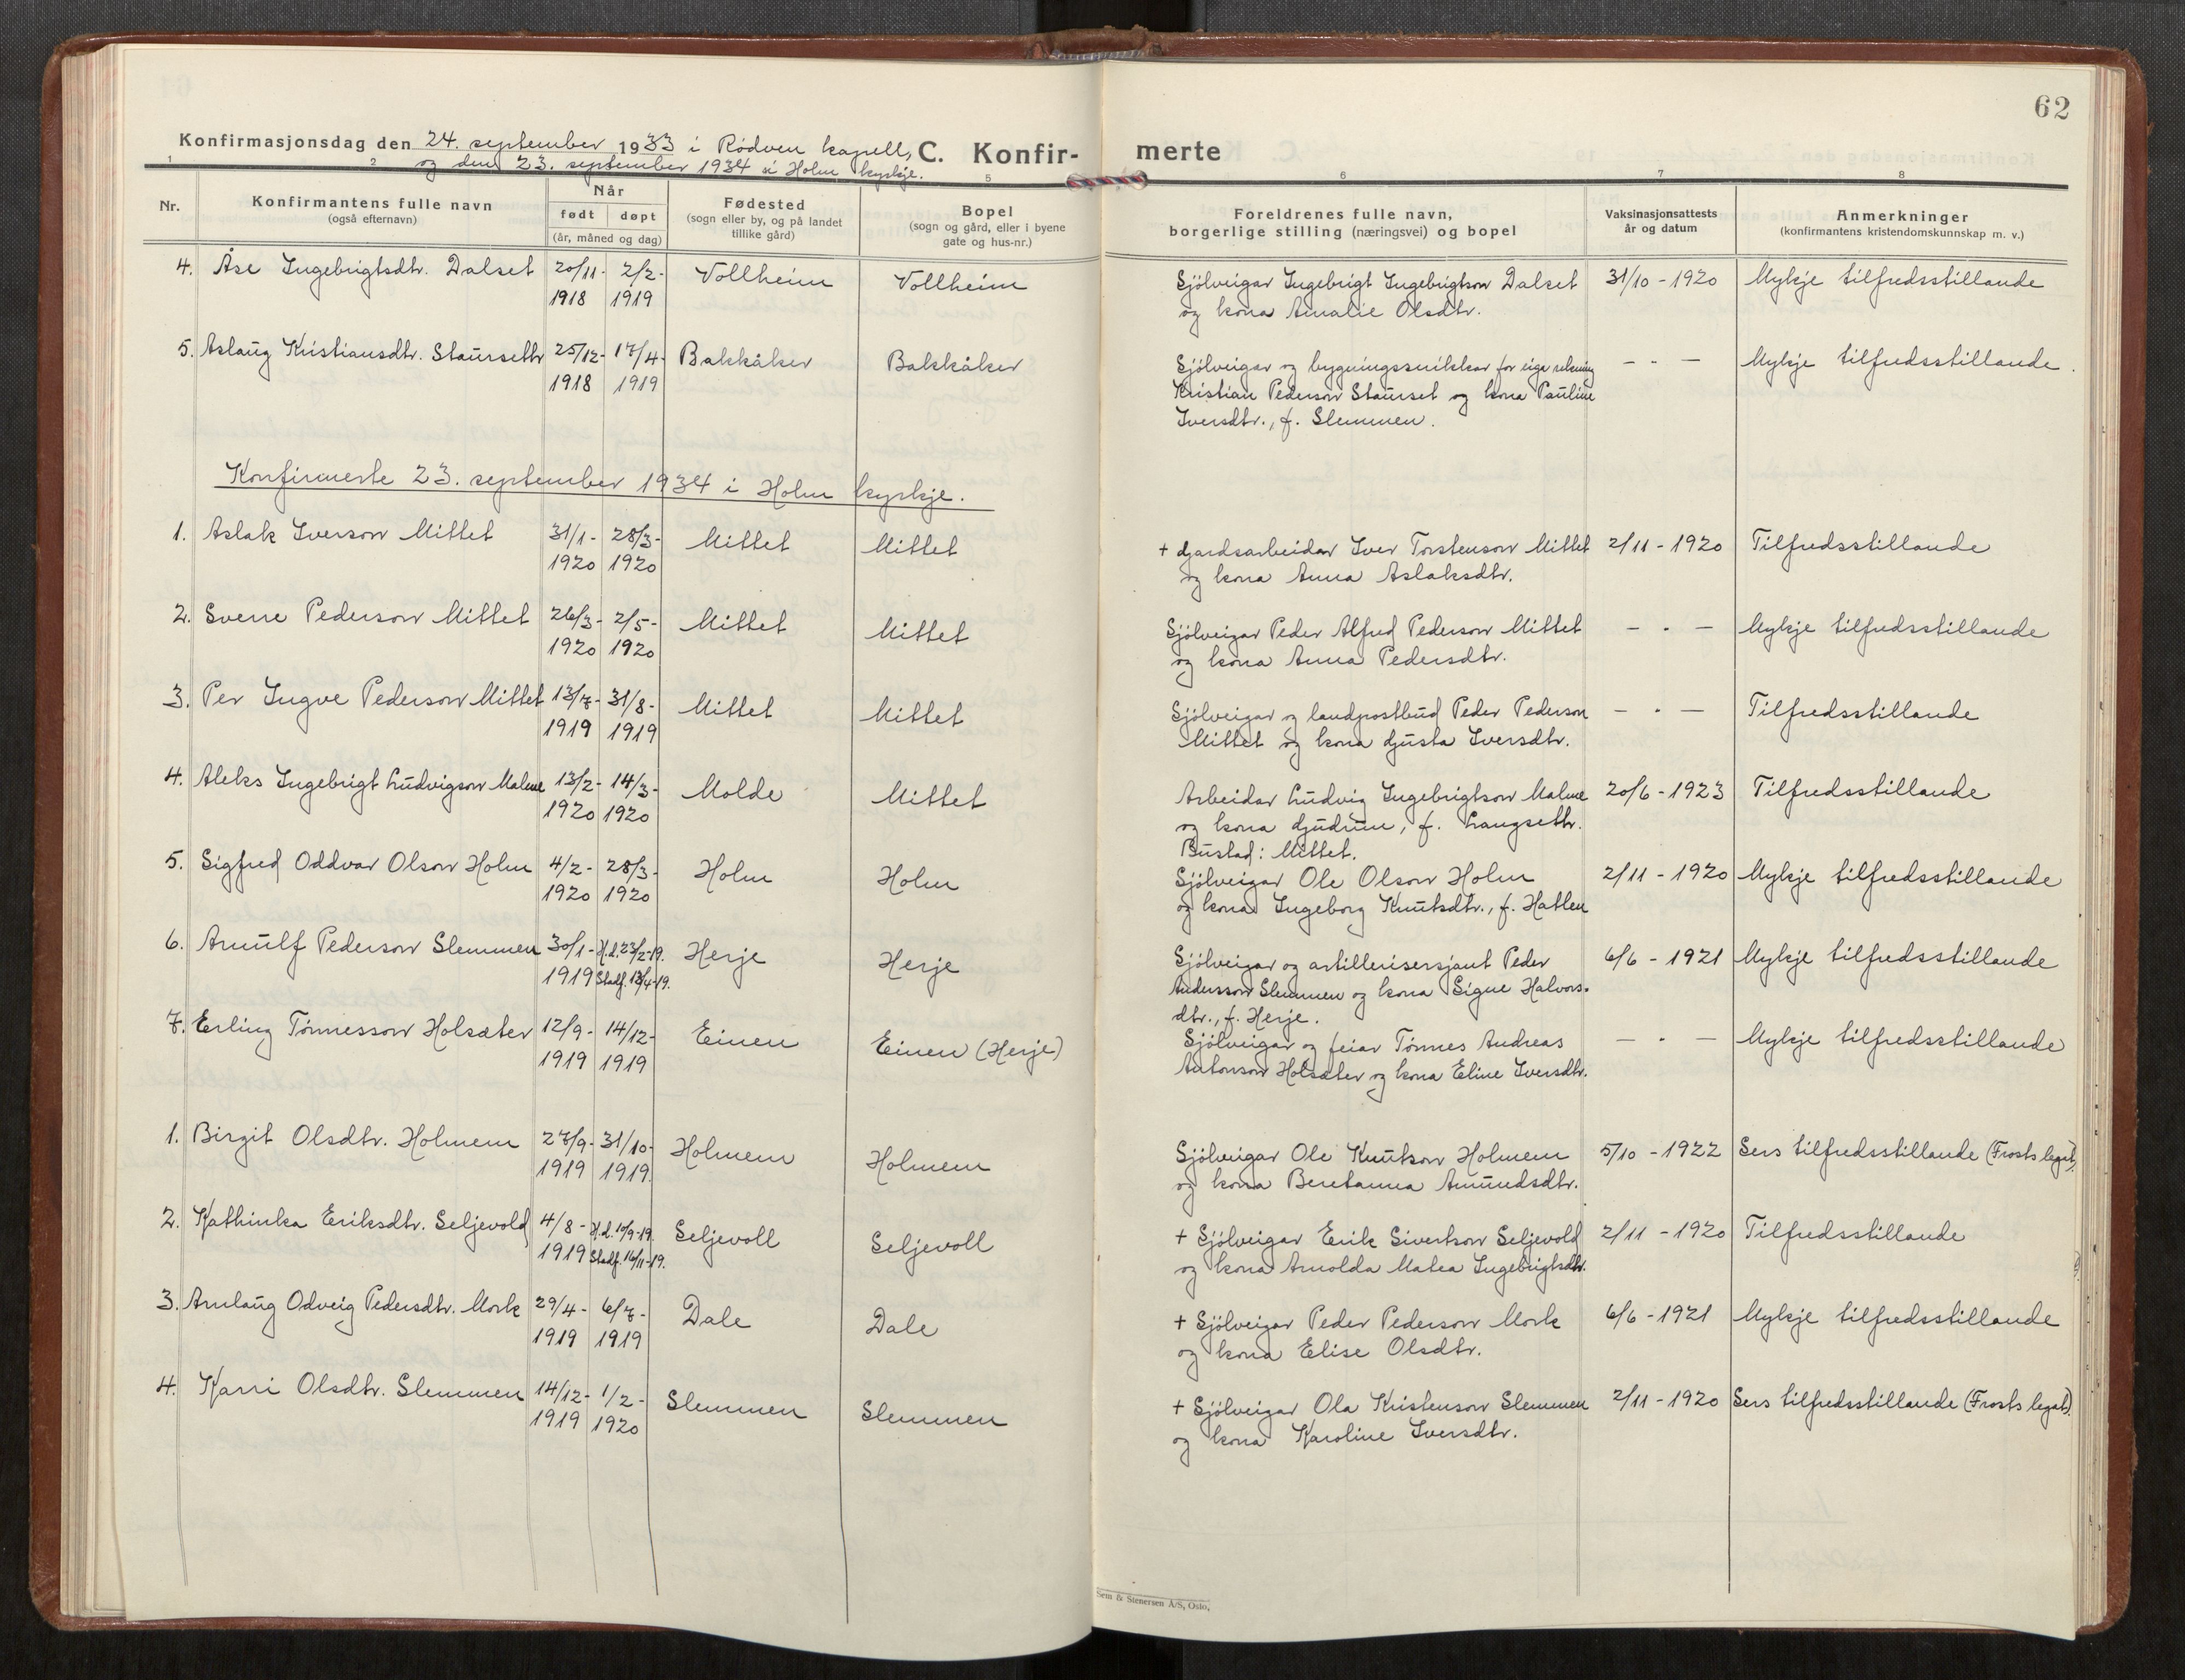 62
Konfirmasjonsdag den 24. september 1933 i Rødven kapell,
og den 23. september 1934 i Holm kyrkje.
C. Konfir- merte
1 2 5 6 7 8
Nr.
Konfirmantens fulle navn
(også efternavn)
Når
født døpt
(år, måned og dag)
Fødested
(sogn eller by, og på landet
tillike gård)
Bopel
(sogn og gård, eller i byene
gate og hus-nr.)
Foreldrenes fulle navn,
borgerlige stilling (næringsvei) og bopel
Vaksinasjonsattests
år og datum
Anmerkninger
(konfirmantens kristendomskunnskap m. v.)
4. Åse Ingebrigtsdtr. Dalset 20/11- 2/2- Vollheim Vollheim Sjölveigar Ingebrigt Ingebrigtson Dalset 31/10 - 1920 Mykje tilfredsstillande
1918 1919 og kona Amalie Olsdtr.
5. Aslaug Kristiansdtr. Staurseth 25/12- 17/4- Bakkåker Bakkåker Sjölveigar og bygningssnikkar for eiga rekning - " - Mykje tilfredsstillande.
1918 1919 Kristian Pederson Staurset og kona Pauline
Iversdtr., f. Slemmen.
Konfirmerte 23. september 1934 i Holm kyrkje.
1. Aslak Iverson Mittet 31/1- 28/3- Mittet Mittet + Gardsarbeidar Iver Torstenson Mittet 2/11 - 1920 Tilfredsstillande
1920 1920 og kona Anna Aslaksdtr.
2. Sverre Pederson Mittet 26/3- 2/5- Mittet Mittet Sjölveigar Peder Alfred Pederson Mittet - " - Mykje tilfredsstillande
1920 1920 og kona Anna Pedersdtr.
3. Per Ingve Pederson Mittet 13/7- 31/8- Mittet Mittet Sjölveigar og landpostbud Peder Pederson - " - Tilfredsstillande
1919 1919 Mittet og kona Gjusta Iversdtr.
4. Aleks Ingebrigt Ludvigson Malme 13/2- 14/3- Molde Mittet Arbeidar Ludvig Ingebrigtson Malme 20/6 - 1923 Tilfredsstillande
1920 1920 og kona Gjudrun, f. Langseth.
Bustad: Mittet.
5. Sigfred Oddvar Olson Holm 4/2- 28/3- Holm Holm Sjölveigar Ole Olson Holm 2/11 - 1920 Mykje tilfredsstillande
1920 1920 og kona Ingeborg Knutsdtr., f. Hatlen
6. Arnulf Pederson Slemmen 30/1- H.d. 23/2-19. Herje Herje Sjölveigar og artillerisersjant Peder 6/6 - 1921 Mykje tilfredsstillande
1919 Stadf. 13/4-19. Andersson Slemmen og kona Signe Halvors-
dtr., f. Herje.
7. Erling Tönnesson Holsæter 12/9- 14/12- Einen Einen (Herje) Sjölveigar og feiar Tönnes Andreas - " - Mykje tilfredsstillande
1919 1919 Antonson Holsæter og kona Eline Iversdtr.
1. Birgit Olsdtr. Holmem 27/9- 31/10- Holmem Holmem Sjölveigar Ole Knutson Holmem 5/10 - 1922 Sers tilfredsstillande (Frosts legat).
1919 1919. og kona Beretanna Amundsdtr.
2. Kathinka Eriksdtr. Seljevold 4/8- H.d. 10/9-19. Seljevoll Seljevoll + Sjölveigar Erik Sivertson Seljevold 2/11 - 1920 Tilfredsstillande
1919 Stadf. 16/11-19. og kona Arnolda Matea Ingebrigtsdtr.
3. Arnlaug Odveig Pedersdtr. Mork 29/4- 6/7- Dale Dale + Sjölveigar Peder Pederson Mork 6/6 - 1921 Mykje tilfredsstillande
1919 1919 og kona Elise Olsdtr.
4. Karri Olsdtr. Slemmen 14/12- 1/2- Slemmen Slemmen + Sjölveigar Ola Kristenson Slemmen 2/11 - 1920 Sers tilfredsstillande (Frosts legat).
1919 1920 og kona Karoline Iversdtr.
Sem & Stenersen A/S, Oslo.